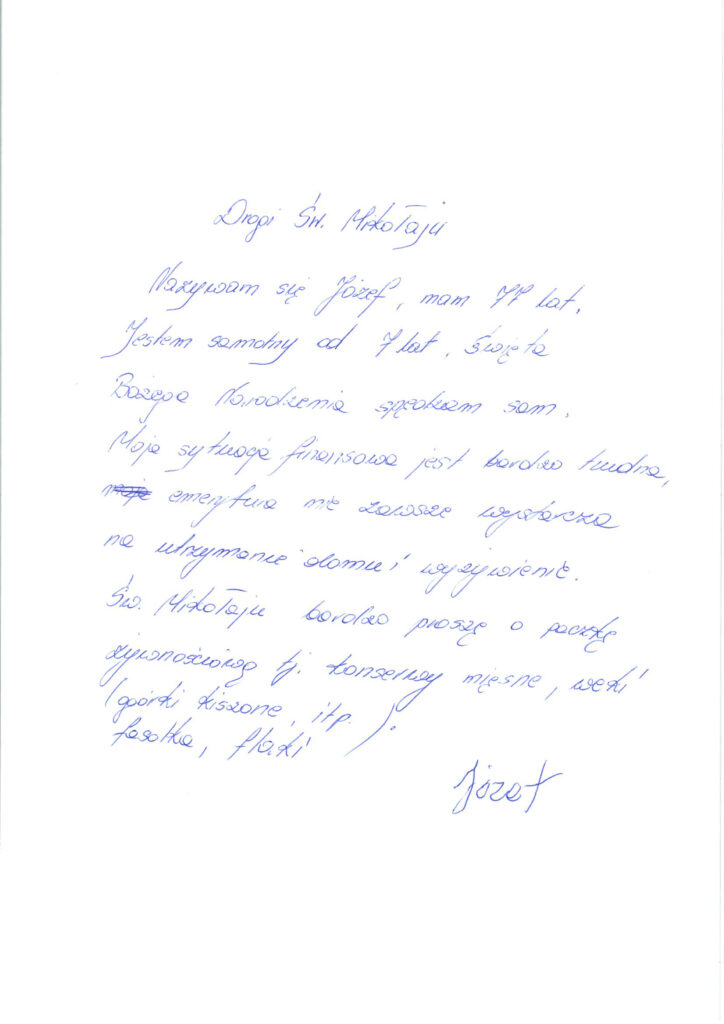 Drogi Św. Mikołaju
Nazywam się Józef, mam 77 lat.
Jestem samotny od 7 lat, święta
Bożego Narodzenia spędzam sam.
Moja sytuacja finansowa jest bardzo trudna,
emerytura nie zawsze wystarcza
na utrzymanie domu i wyżywienie.
Św. Mikołaju bardzo proszę o paczkę
żywnościową tj. konserwy mięsne, weki
(ogórki kiszone, itp.).
fasolka, flaki
Józef